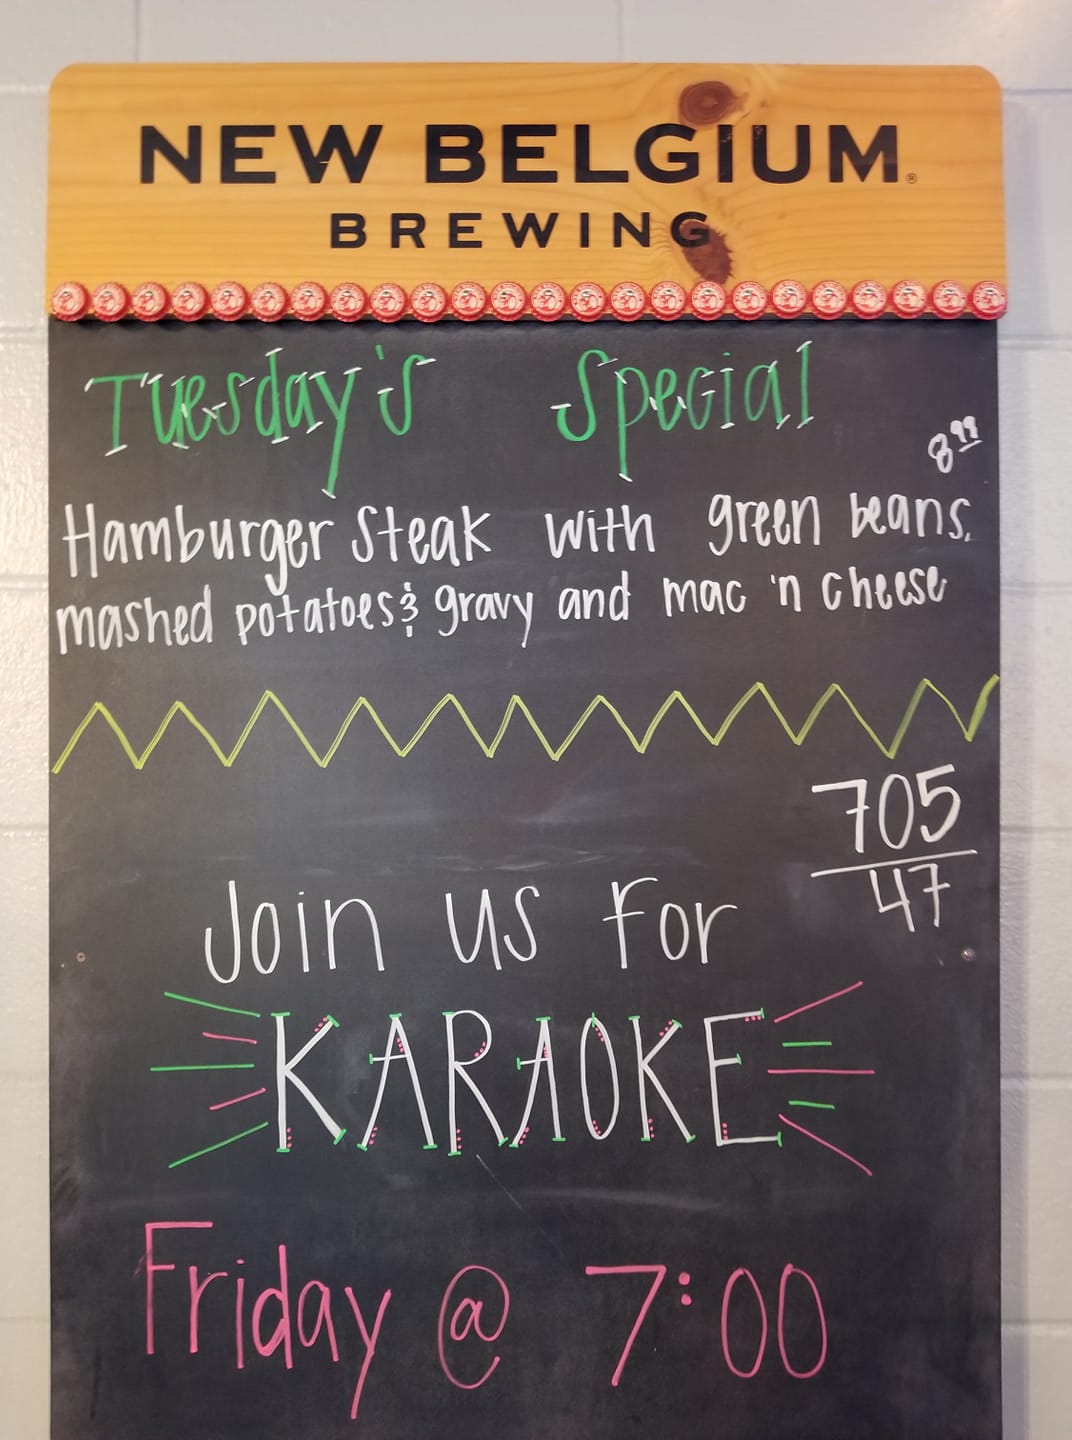 NEW BELGIUM®
BREWING
Tuesday's Special
8.99
Hamburger Steak with green beans,
mashed potatoes & gravy and mac 'n cheese
705
47
Join us for
KARAOKE
Friday @ 7:00